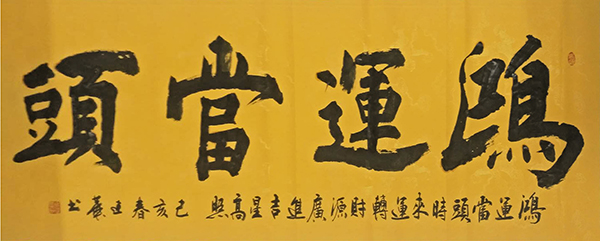 鴻運當頭
鴻運當頭時來運轉財源廣進吉星高照 己亥春 书